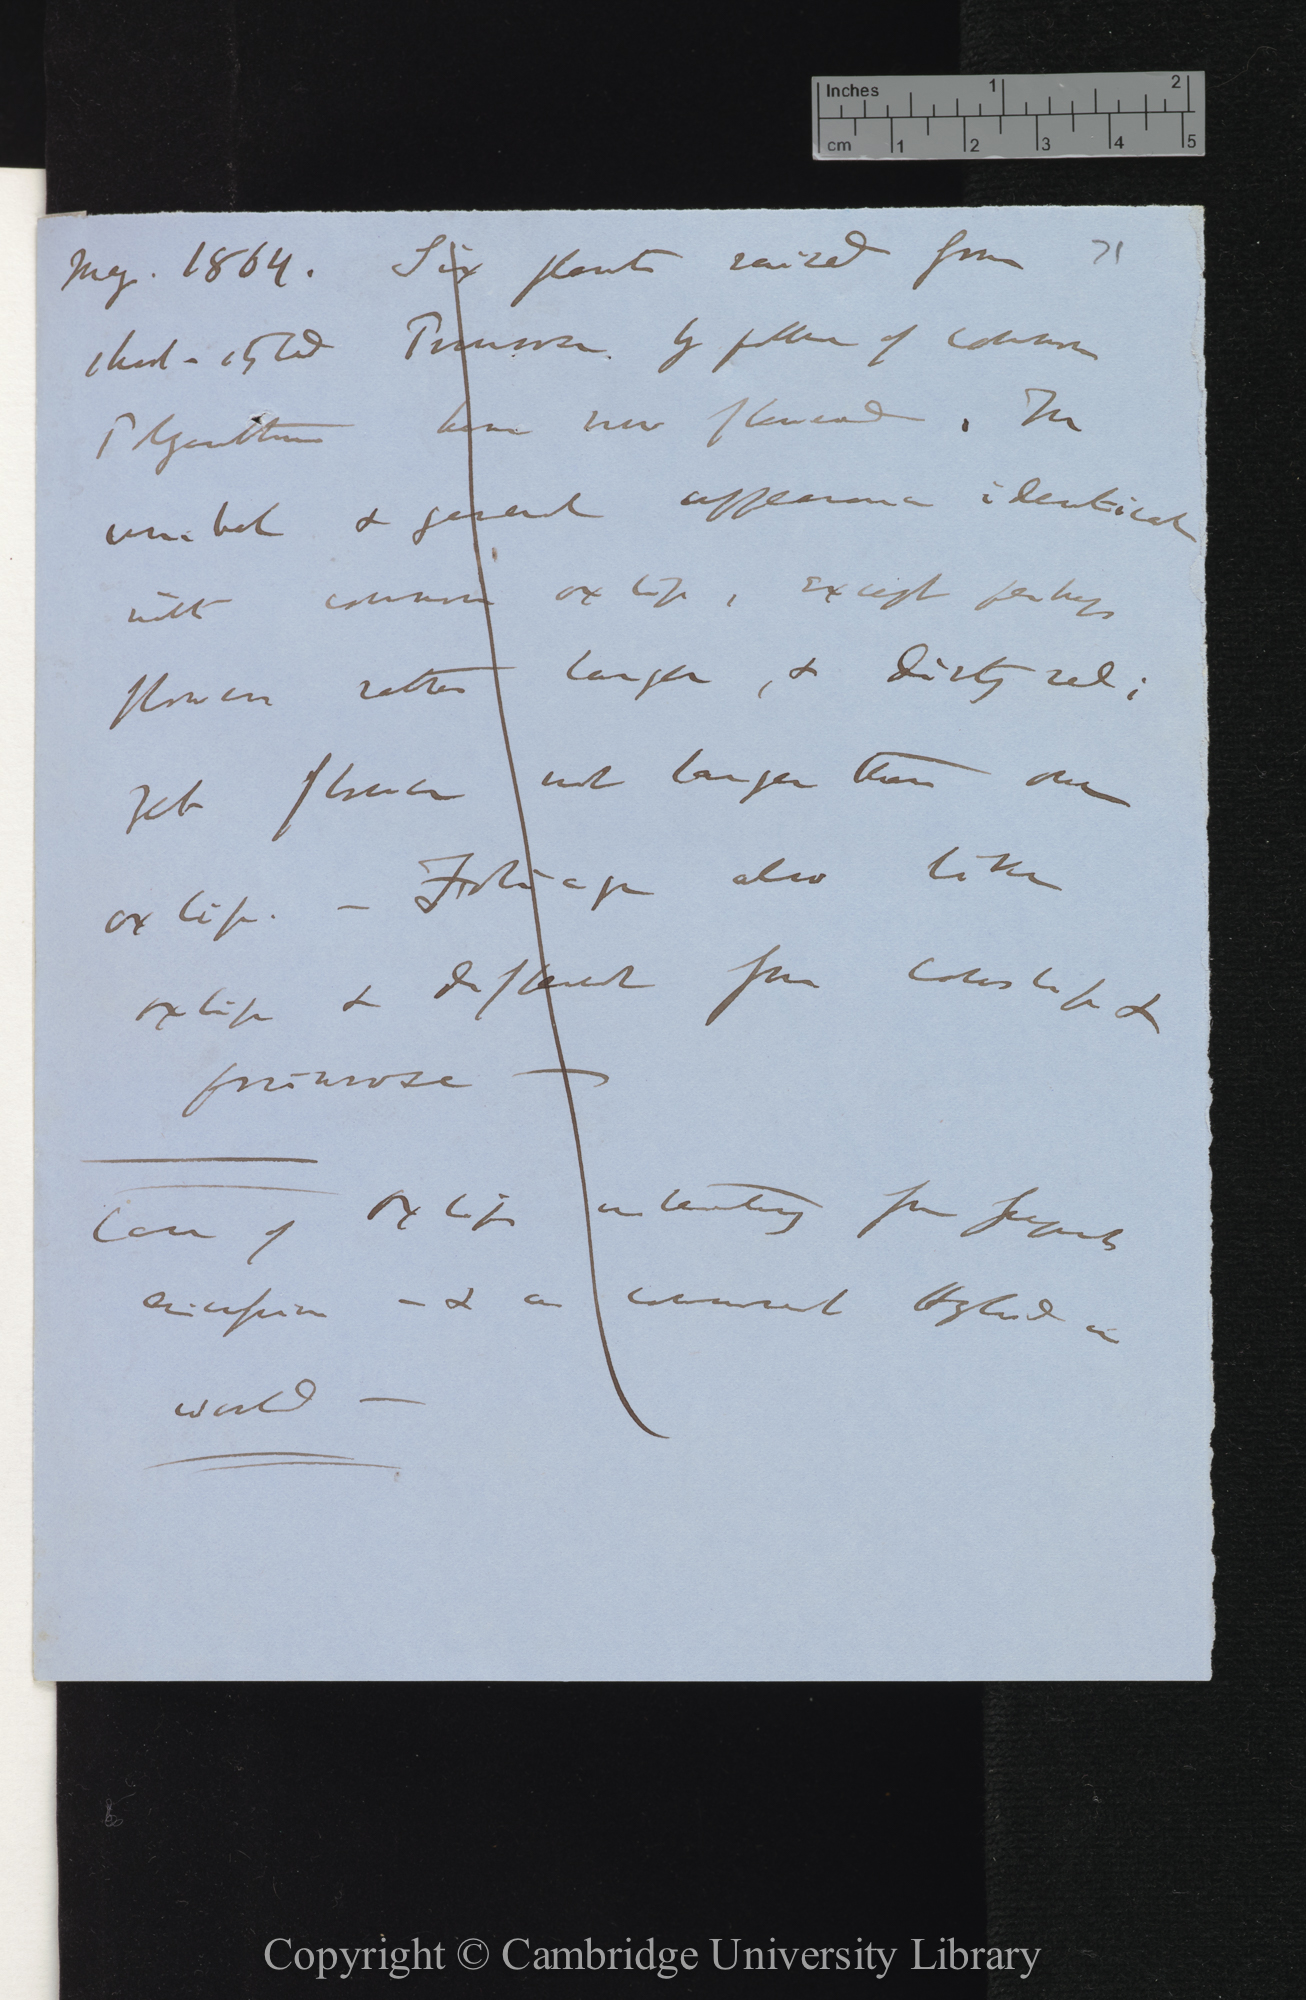 Inches 1 2
cm 1 2 3 4 5
May. 1864. Six plants raised from 71
short-styled Primrose. by pollen of common
Polyanthus have now flowered. The
umbel & general appearance identical
with common oxlip, except perhaps
flowers rather larger, & dirty red;
yet flower not larger than one
oxlip. — Foliage also like
oxlip & different from cowslip &
primrose —
Case of Oxlip interesting from frequent
— & as commonest Hybrid in
world —
Copyright © Cambridge University Library